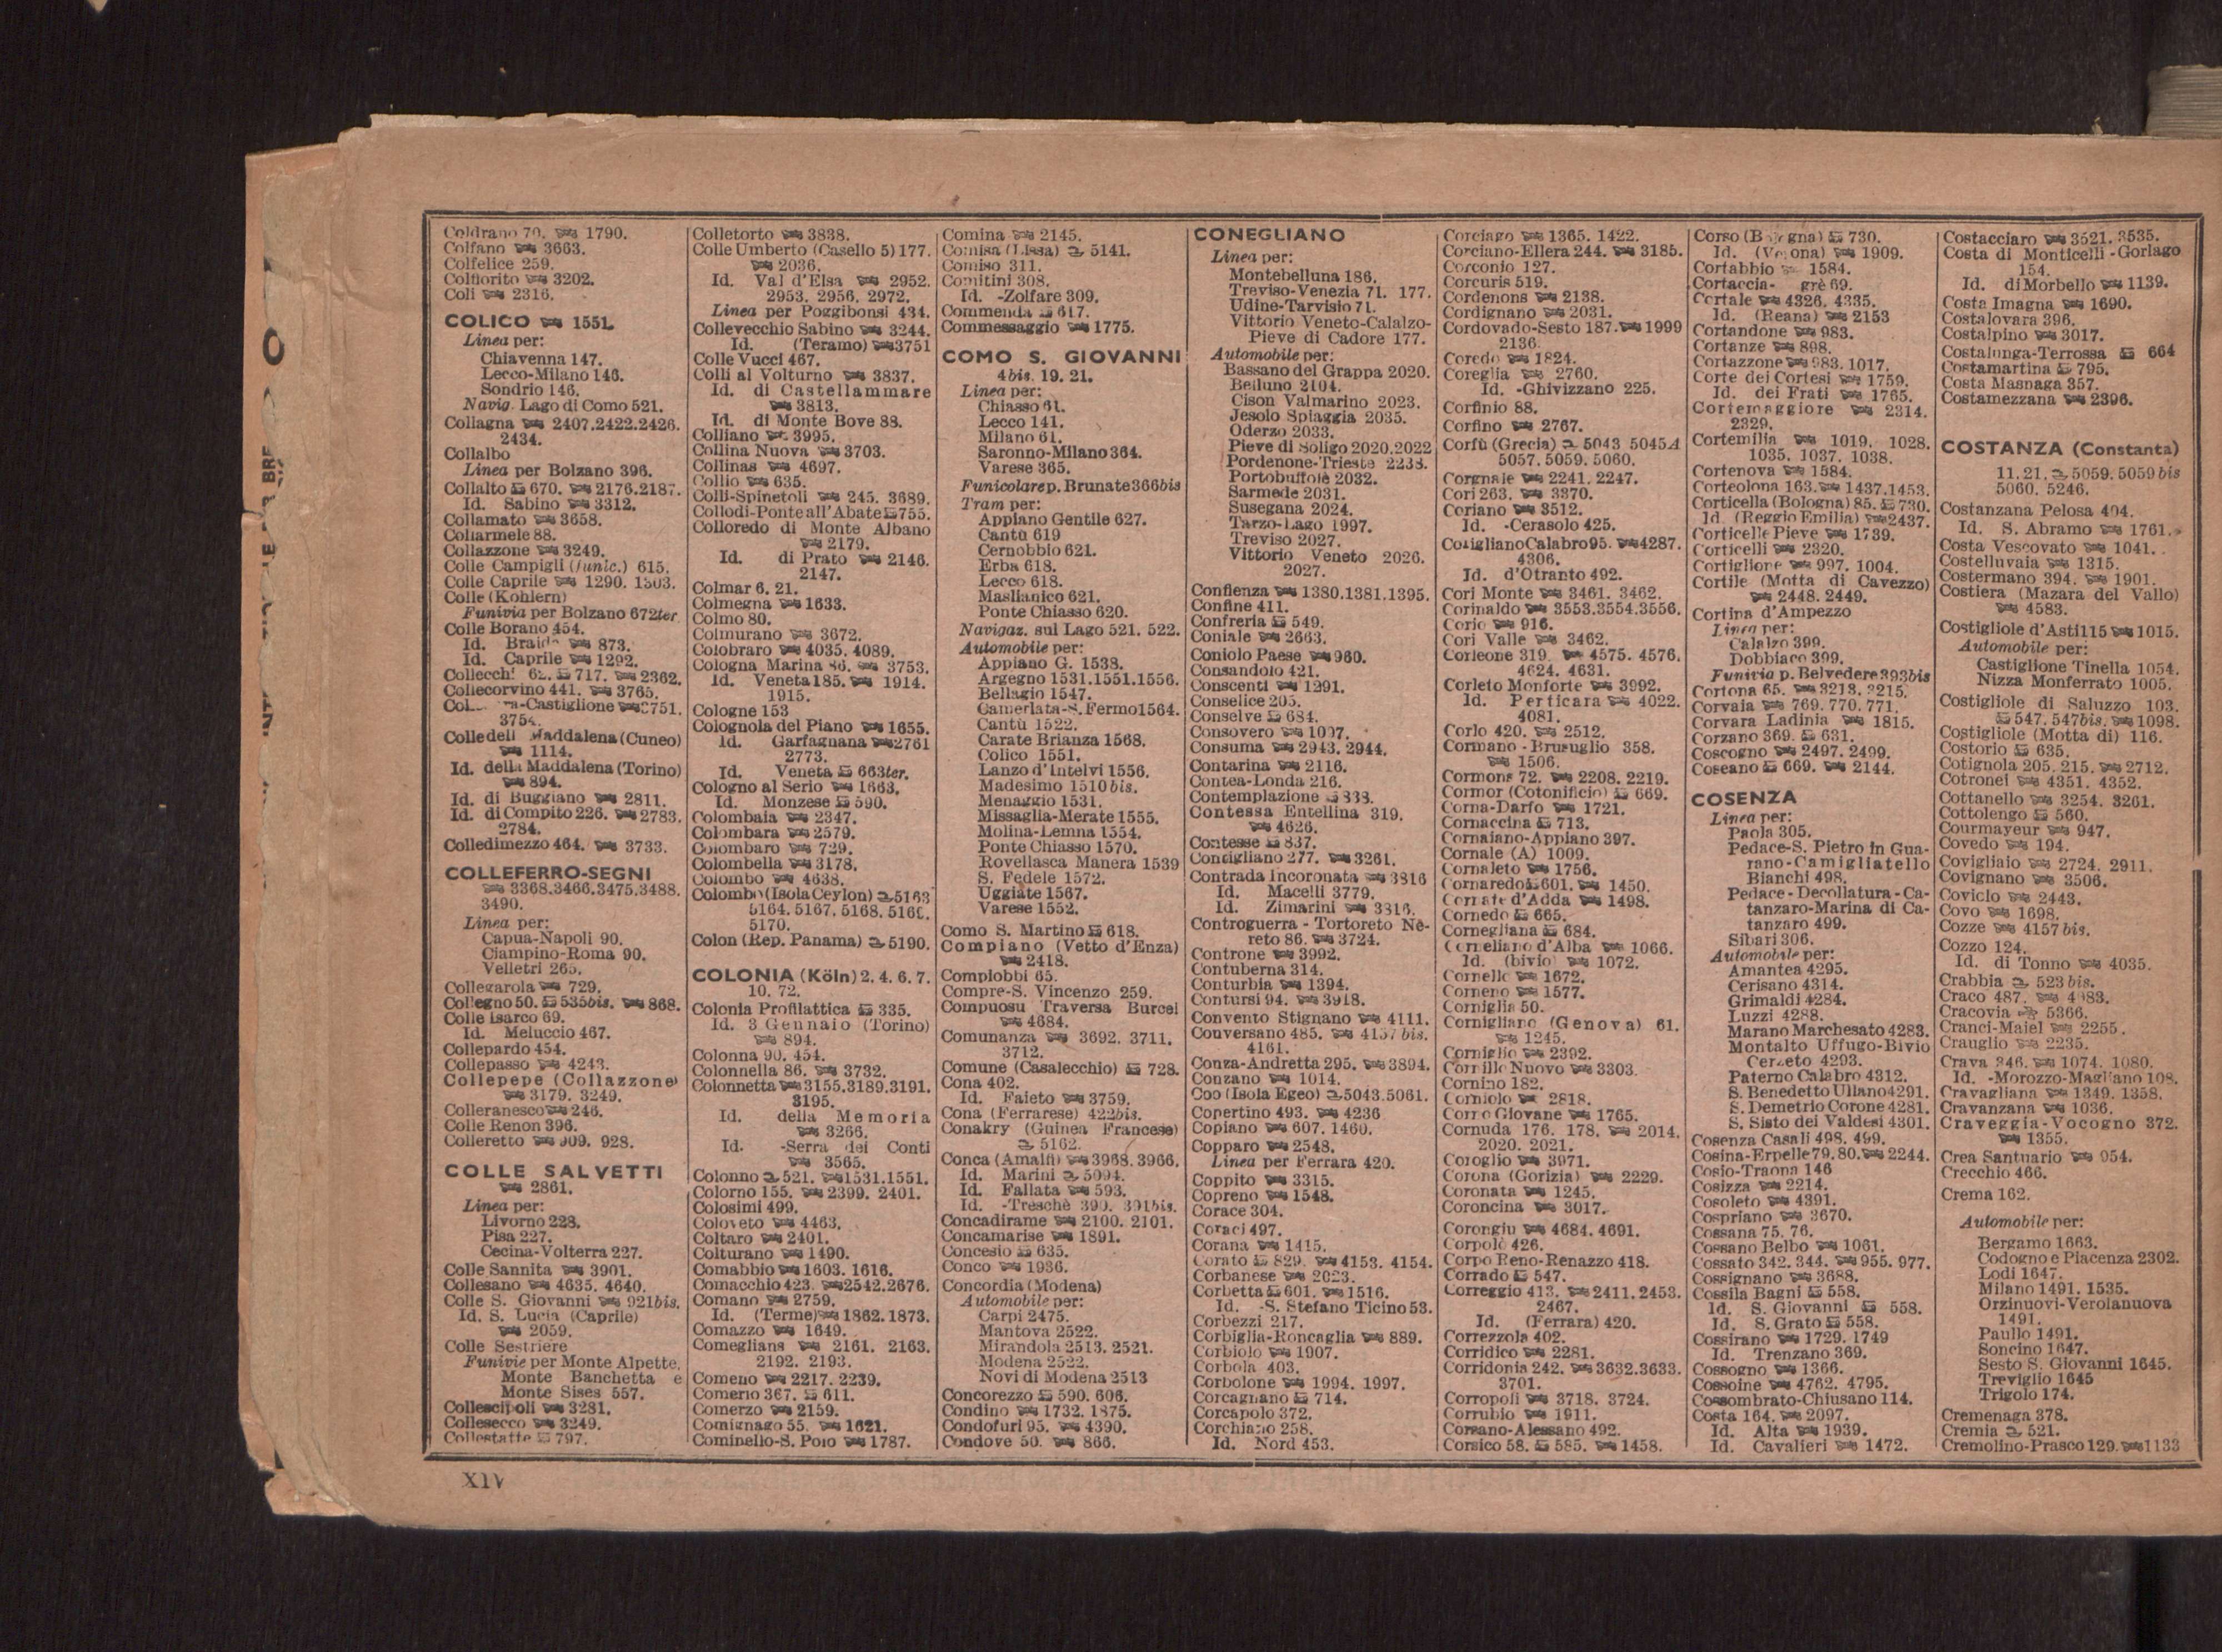 Coldrano 70. 1790.
Colfano 3663.
Colfelice 259.
Colfiorito 3202.
Coli 2316.
COLICO 1551.
Linea per:
Chiavenna 147.
Lecco-Milano 146.
Sondrio 146.
Navig. Lago di Como 521.
Collagna 2407.2422.2426.
2434.
Collalbo
Linea per Bolzano 396.
Collalto 670. 2176.2187.
Id. Sabino 3312.
Collamato 3658.
Collarmele 88.
Collazzone 3249.
Colle Campigli (funic.) 615.
Colle Caprile 1290. 1303.
Colle (Kohlern)
Funivia per Bolzano 672ter
Colle Borano 454.
Id. Braida 873.
Id. Caprile 1292.
Collecch 62. 717. 2362.
Collecorvino 441. 3765.
-Castiglione 3751.
Colle dell Maddalena (Cuneo)
1114.
Id. della Maddalena (Torino)
894.
Id. di Buggiano 2811.
Id. di Compito 226. 2783.
2784.
Colledimezzo 464. 3733.
COLLEFERRO-SEGNI
3368.3466.3475.3488.
3490.
Linea per:
Capua-Napoli 90.
Ciampino-Roma 90.
Velletri 265.
Collegarola 729.
Collegno 50. 535bis. 868.
Colle Isarco 69.
Id. Meluccio 467.
Collepardo 454.
Collepasso 4243.
Collepepe (Collazzone)
3179. 3249.
Colleranesco 246.
Colle Renon 396.
Colleretto 909. 928.
COLLE SALVETTI
2861.
Linea per:
Livorno 228.
Pisa 227.
Cecina-Volterra 227.
Colle Sannita 3901.
Collesano 4635. 4640.
Colle S. Giovanni 921bis.
Id. S. Lucia (Caprile)
2059.
Colle Sestriere
Funivie per Monte Alpette,
Monte Banchetta e
Monte Sises 557.
Collescipoli 3281.
Collesecco 3249.
Collestatte 797.
Colletorto 3838.
Colle Umberto (Casello 5) 177.
2036.
Id. Val d'Elsa 2952.
2953. 2956. 2972.
Linea per Poggibonsi 434.
Collevecchio Sabino 3244.
Id. (Teramo) 3751
Colle Vucci 467.
Colli al Volturno 3837.
Id. di Castellammare
3813.
Id. di Monte Bove 88.
Colliano 3995.
Collina Nuova 3703.
Collinas 4697.
Collio 635.
Colli-Spinetoli 245. 3689.
Collodi-Ponte all'Abate 755.
Colloredo di Monte Albano
2179.
Id. di Prato 2146.
2147.
Colmar 6. 21.
Colmegna 1633.
Colmo 80.
Colmurano 3672.
Colobraro 4035. 4089.
Cologna Marina 86. 3753.
Id. Veneta 185. 1914.
1915.
Cologne 153
Colognola del Piano 1655.
Id. Garfagnana 2761
2773.
Id. Veneta 663ter.
Cologno al Serio 1663.
Id. Monzese 590.
Colombaia 2347.
Colombara 2579.
Colombaro 729.
Colombella 3178.
Colombo 4638.
Colombo (Isola Ceylon) 5163
5164. 5167. 5168. 5169.
5170.
Colon (Rep. Panama) 5190.
COLONIA (Köln) 2. 4. 6. 7.
10. 72.
Colonia Profilattica 335.
Id. 3 Gennaio (Torino)
894.
Colonna 90. 454.
Colonnella 86. 3732.
Colonnetta 3155.3189.3191.
3195.
Id. della Memoria
3266.
Id. -Serra dei Conti
3565.
Colonno 521. 1531.1551.
Colorno 155. 2399. 2401.
Colosimi 499.
Coloveto 4463.
Coltaro 2401.
Colturano 1490.
Comabbio 1603. 1616.
Comacchio 423. 2542.2676.
Comano 2759.
Id. (Terme) 1862.1873.
Comazzo 1649.
Comeglians 2161. 2163.
2192. 2193.
Comeno 2217. 2239.
Comerio 367. 611.
Comerzo 2159.
Comignago 55. 1621.
Cominello-S. Polo 1787.
Comina 2145.
Comisa (Lissa) 5141.
Comiso 311.
Comitini 308.
Id. -Zolfare 309.
Commenda 617.
Commessaggio 1775.
COMO S. GIOVANNI
4bis. 19. 21.
Linea per:
Chiasso 61.
Lecco 141.
Milano 61.
Saronno-Milano 364.
Varese 365.
Funicolare p. Brunate 366bis
Tram per:
Appiano Gentile 627.
Cantù 619
Cernobbio 621.
Erba 618.
Lecco 618.
Maslianico 621.
Ponte Chiasso 620.
Navigaz. sul Lago 521. 522.
Automobile per:
Appiano G. 1538.
Argegno 1531.1551.1556.
Bellagio 1547.
Camerlata-S.Fermo 1564.
Cantù 1522.
Carate Brianza 1568.
Colico 1551.
Lanzo d'Intelvi 1556.
Madesimo 1510bis.
Menaggio 1531.
Missaglia-Merate 1555.
Molina-Lemna 1554.
Ponte Chiasso 1570.
Rovellasca Manera 1539
S. Fedele 1572.
Uggiate 1567.
Varese 1552.
Como S. Martino 618.
Compiano (Vetto d'Enza)
2418.
Compiobbi 65.
Compre-S. Vincenzo 259.
Compuosu Traversa Burcei
4684.
Comunanza 3692. 3711.
3712.
Comune (Casalecchio) 728.
Cona 402.
Id. Faieto 3759.
Cona (Ferrarese) 422bis.
Conakry (Guinea Francese)
5162.
Conca (Amalfi) 3968. 3966.
Id. Marini 5094.
Id. Fallata 593.
Id. -Treschè 390. 391bis.
Concadirame 2100. 2101.
Concamarise 1891.
Concesio 635.
Conco 1936.
Concordia (Modena)
Automobile per:
Carpi 2475.
Mantova 2522.
Mirandola 2513. 2521.
Modena 2522.
Novi di Modena 2513
Concorezzo 590. 606.
Condino 1732. 1875.
Condofuri 95. 4390.
Condove 50. 866.
CONEGLIANO
Linea per:
Montebelluna 186.
Treviso-Venezia 71. 177.
Udine-Tarvisio 71.
Vittorio Veneto-Calalzo-
Pieve di Cadore 177.
Automobile per:
Bassano del Grappa 2020.
Belluno 2104.
Cison Valmarino 2023.
Jesolo Spiaggia 2035.
Oderzo 2033.
Pieve di Soligo 2020.2022
Pordenone-Trieste 2238.
Portobuffolè 2032.
Sarmede 2031.
Susegana 2024.
Tarzo-Lago 1997.
Treviso 2027.
Vittorio Veneto 2026.
2027.
Confienza 1380.1381.1395.
Confine 411.
Confreria 549.
Coniale 2663.
Coniolo Paese 960.
Consandolo 421.
Conscenti 1291.
Conselice 205.
Conselve 684.
Consovero 1007.
Consuma 2943. 2944.
Contarina 2116.
Contea-Londa 216.
Contemplazione 838.
Contessa Entellina 319.
4626.
Contesse 837.
Contigliano 277. 3261.
Contrada Incoronata 3816
Id. Macelli 3779.
Id. Zimarini 3816.
Controguerra - Tortoreto Ne-
reto 86. 3724.
Controne 3992.
Contuberna 314.
Conturbia 1394.
Contursi 94. 3918.
Convento Stignano 4111.
Conversano 485. 4157bis.
4161.
Conza-Andretta 295. 3894.
Conzano 1014.
Coo (Isola Egeo) 5043.5061.
Copertino 493. 4236
Copiano 607. 1460.
Copparo 2548.
Linea per Ferrara 420.
Coppito 3315.
Copreno 1548.
Corace 304.
Coraci 497.
Corana 1415.
Corato 829. 4153. 4154.
Corbanese 2023.
Corbetta 601. 1516.
Id. -S. Stefano Ticino 53.
Corbezzi 217.
Corbiglia-Roncaglia 889.
Corbiolo 1907.
Corbola 403.
Corbolone 1994. 1997.
Corcagnano 714.
Corcapolo 372.
Corchiano 258.
Id. Nord 453.
Corciago 1365. 1422.
Corciano-Ellera 244. 3185.
Corconio 127.
Corcuris 519.
Cordenons 2138.
Cordignano 2031.
Cordovado-Sesto 187. 1999
2136.
Coredo 1824.
Coreglia 2760.
Id. -Ghivizzano 225.
Corfinio 88.
Corfino 2767.
Corfù (Grecia) 5043 5045A
5057. 5059. 5060.
Corgnale 2241. 2247.
Cori 263. 3370.
Coriano 3512.
Id. -Cerasolo 425.
Corigliano Calabro 95. 4287.
4306.
Id. d'Otranto 492.
Cori Monte 3461. 3462.
Corinaldo 3553.3554.3556.
Corio 916.
Cori Valle 3462.
Corleone 319. 4575. 4576.
4624. 4631.
Corleto Monforte 3992.
Id. Perticara 4022.
4081.
Corlo 420. 2512.
Cormano - Brusuglio 358.
1506.
Cormons 72. 2208. 2219.
Cormor (Cotonificio) 669.
Corna-Darfo 1721.
Cornaccina 713.
Cornaiano-Appiano 397.
Cornale (A) 1009.
Cornaleto 1756.
Cornaredo 601. 1450.
Cornate d'Adda 1498.
Cornedo 665.
Cornegliana 684.
Corneliano d'Alba 1066.
Id. (bivio) 1072.
Cornello 1672.
Corneno 1577.
Corniglia 50.
Cornigliano (Genova) 61.
1245.
Corniglio 2392.
Cornillo Nuovo 3303.
Cornino 182.
Corniolo 2818.
Corno Giovane 1765.
Cornuda 176. 178. 2014.
2020. 2021.
Coroglio 3971.
Corona (Gorizia) 2229.
Coronata 1245.
Coroncina 3017.
Corongiu 4684. 4691.
Corpolò 426.
Corpo Reno-Renazzo 418.
Corrado 547.
Correggio 413. 2411. 2453.
2467.
Id. (Ferrara) 420.
Correzzola 402.
Corridico 2281.
Corridonia 242. 3632.3633.
3701.
Corropoli 3718. 3724.
Corrubio 1911.
Corsano-Alessano 492.
Corsico 58. 585. 1458.
Corso (Bologna) 730.
Id. (Verona) 1909.
Cortabbio 1584.
Cortaccia- grè 69.
Cortale 4326. 4335.
Id. (Reana) 2153
Cortandone 983.
Cortanze 898.
Cortazzone 983. 1017.
Corte dei Cortesi 1759.
Id. dei Frati 1765.
Cortemaggiore 2314.
2329.
Cortemilia 1019. 1028.
1035. 1037. 1038.
Cortenova 1584.
Corteolona 163. 1437.1453.
Corticella (Bologna) 85. 730.
Id. (Reggio Emilia) 2437.
Corticelle Pieve 1739.
Corticelli 2320.
Cortiglione 997. 1004.
Cortile (Motta di Cavezzo)
2448. 2449.
Cortina d'Ampezzo
Linea per:
Calalzo 399.
Dobbiaco 399.
Funivia p. Belvedere 393bis
Cortona 65. 3213. 3215.
Corvaia 769. 770. 771.
Corvara Ladinia 1815.
Corzano 369. 631.
Coscogno 2497. 2499.
Coseano 669. 2144.
COSENZA
Linea per:
Paola 305.
Pedace-S. Pietro in Gua-
rano-Camigliatello
Bianchi 498.
Pedace - Decollatura - Ca-
tanzaro-Marina di Ca-
tanzaro 499.
Sibari 306.
Automobile per:
Amantea 4295.
Cerisano 4314.
Grimaldi 4284.
Luzzi 4288.
Marano Marchesato 4283.
Montalto Uffugo-Bivio
Cerzeto 4293.
Paterno Calabro 4312.
S. Benedetto Ullano 4291.
S. Demetrio Corone 4281.
S. Sisto dei Valdesi 4301.
Cosenza Casali 498. 499.
Cosina-Erpelle 79. 80. 2244.
Cosio-Traona 146
Cosizza 2214.
Cosoleto 4391.
Cospriano 3670.
Cossana 75. 76.
Cossano Belbo 1061.
Cossato 342. 344. 955. 977.
Cossignano 3688.
Cossila Bagni 558.
Id. S. Giovanni 558.
Id. S. Grato 558.
Cossirano 1729. 1749
Id. Trenzano 369.
Cossogno 1366.
Cossoine 4762. 4795.
Cossombrato-Chiusano 114.
Costa 164. 2097.
Id. Alta 1939.
Id. Cavalieri 1472.
Costacciaro 3521. 3535.
Costa di Monticelli - Gorlago
154.
Id. di Morbello 1139.
Costa Imagna 1690.
Costalovara 396.
Costalpino 3017.
Costalunga-Terrossa 664
Costamartina 795.
Costa Masnaga 357.
Costamezzana 2396.
COSTANZA (Constanta)
11. 21. 5059. 5059bis
5060. 5246.
Costanzana Pelosa 404.
Id. S. Abramo 1761.
Costa Vescovato 1041.
Costelluvaia 1315.
Costermano 394. 1901.
Costiera (Mazara del Vallo)
4583.
Costigliole d'Asti 115 1015.
Automobile per:
Castiglione Tinella 1054.
Nizza Monferrato 1005.
Costigliole di Saluzzo 103.
547. 547bis. 1098.
Costigliole (Motta di) 116.
Costorio 635.
Cotignola 205. 215. 2712.
Cotronei 4351. 4352.
Cottanello 3254. 3261.
Cottolengo 560.
Courmayeur 947.
Covedo 194.
Covigliaio 2724. 2911.
Covignano 3506.
Coviolo 2443.
Covo 1698.
Cozze 4157bis.
Cozzo 124.
Id. di Tonno 4035.
Crabbia 523bis.
Craco 487.
Cracovia 5366.
Cranci-Maiel 2255.
Crauglio 2235.
Crava 346. 1074. 1080.
Id. -Morozzo-Magliano 108.
Cravagliana 1349. 1358.
Cravanzana 1036.
Craveggia-Vocogno 372.
1355.
Crea Santuario 954.
Crecchio 466.
Crema 162.
Automobile per:
Bergamo 1663.
Codogno e Piacenza 2302.
Lodi 1647.
Milano 1491. 1535.
Orzinuovi-Verolanuova
1491.
Paullo 1491.
Soncino 1647.
Sesto S. Giovanni 1645.
Treviglio 1645
Trigolo 174.
Cremenaga 378.
Cremia 521.
Cremolino-Prasco 129. 1133
XIV